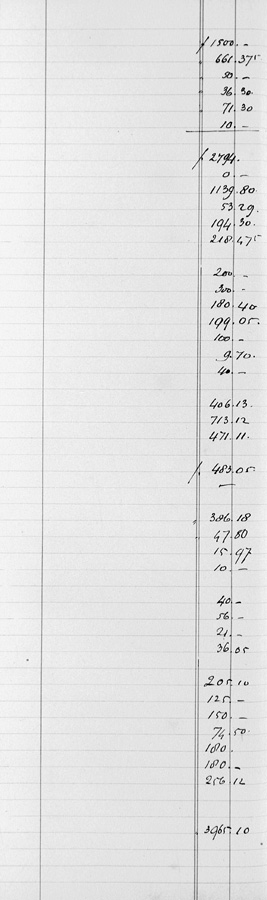 1500. -
661.375
50. -
36.30
71.30
10. -
2794.
0. -
1139.80
53.29.
194.30.
218.475
200. -
300. -
180.40
199.05.
100 -
9.70.
40 -
406.13.
713.12
471.11.
483.05
-
386.18
47.80
15.97
10 -
40 -
56 -
21 -
36.05
205.10
125 -
150 -
74.50.
180.
180. -
256.12
3965.10